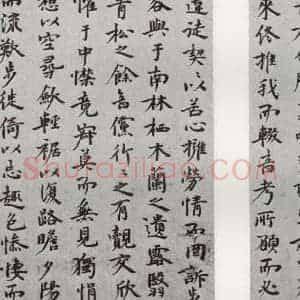 來終推我而輟音考所願而必
違徒契〻以苦心擁勞情而罔訴步
容與于南林栖木蘭之遺露翳
青松之餘音儻行〻之有覿交欣
懼于中襟竟寂寞而無見獨悁
想以空尋斂輕裾以復路瞻夕陽
而流歎步徙倚以忘趣色慘悽而
Shufaziliao.com